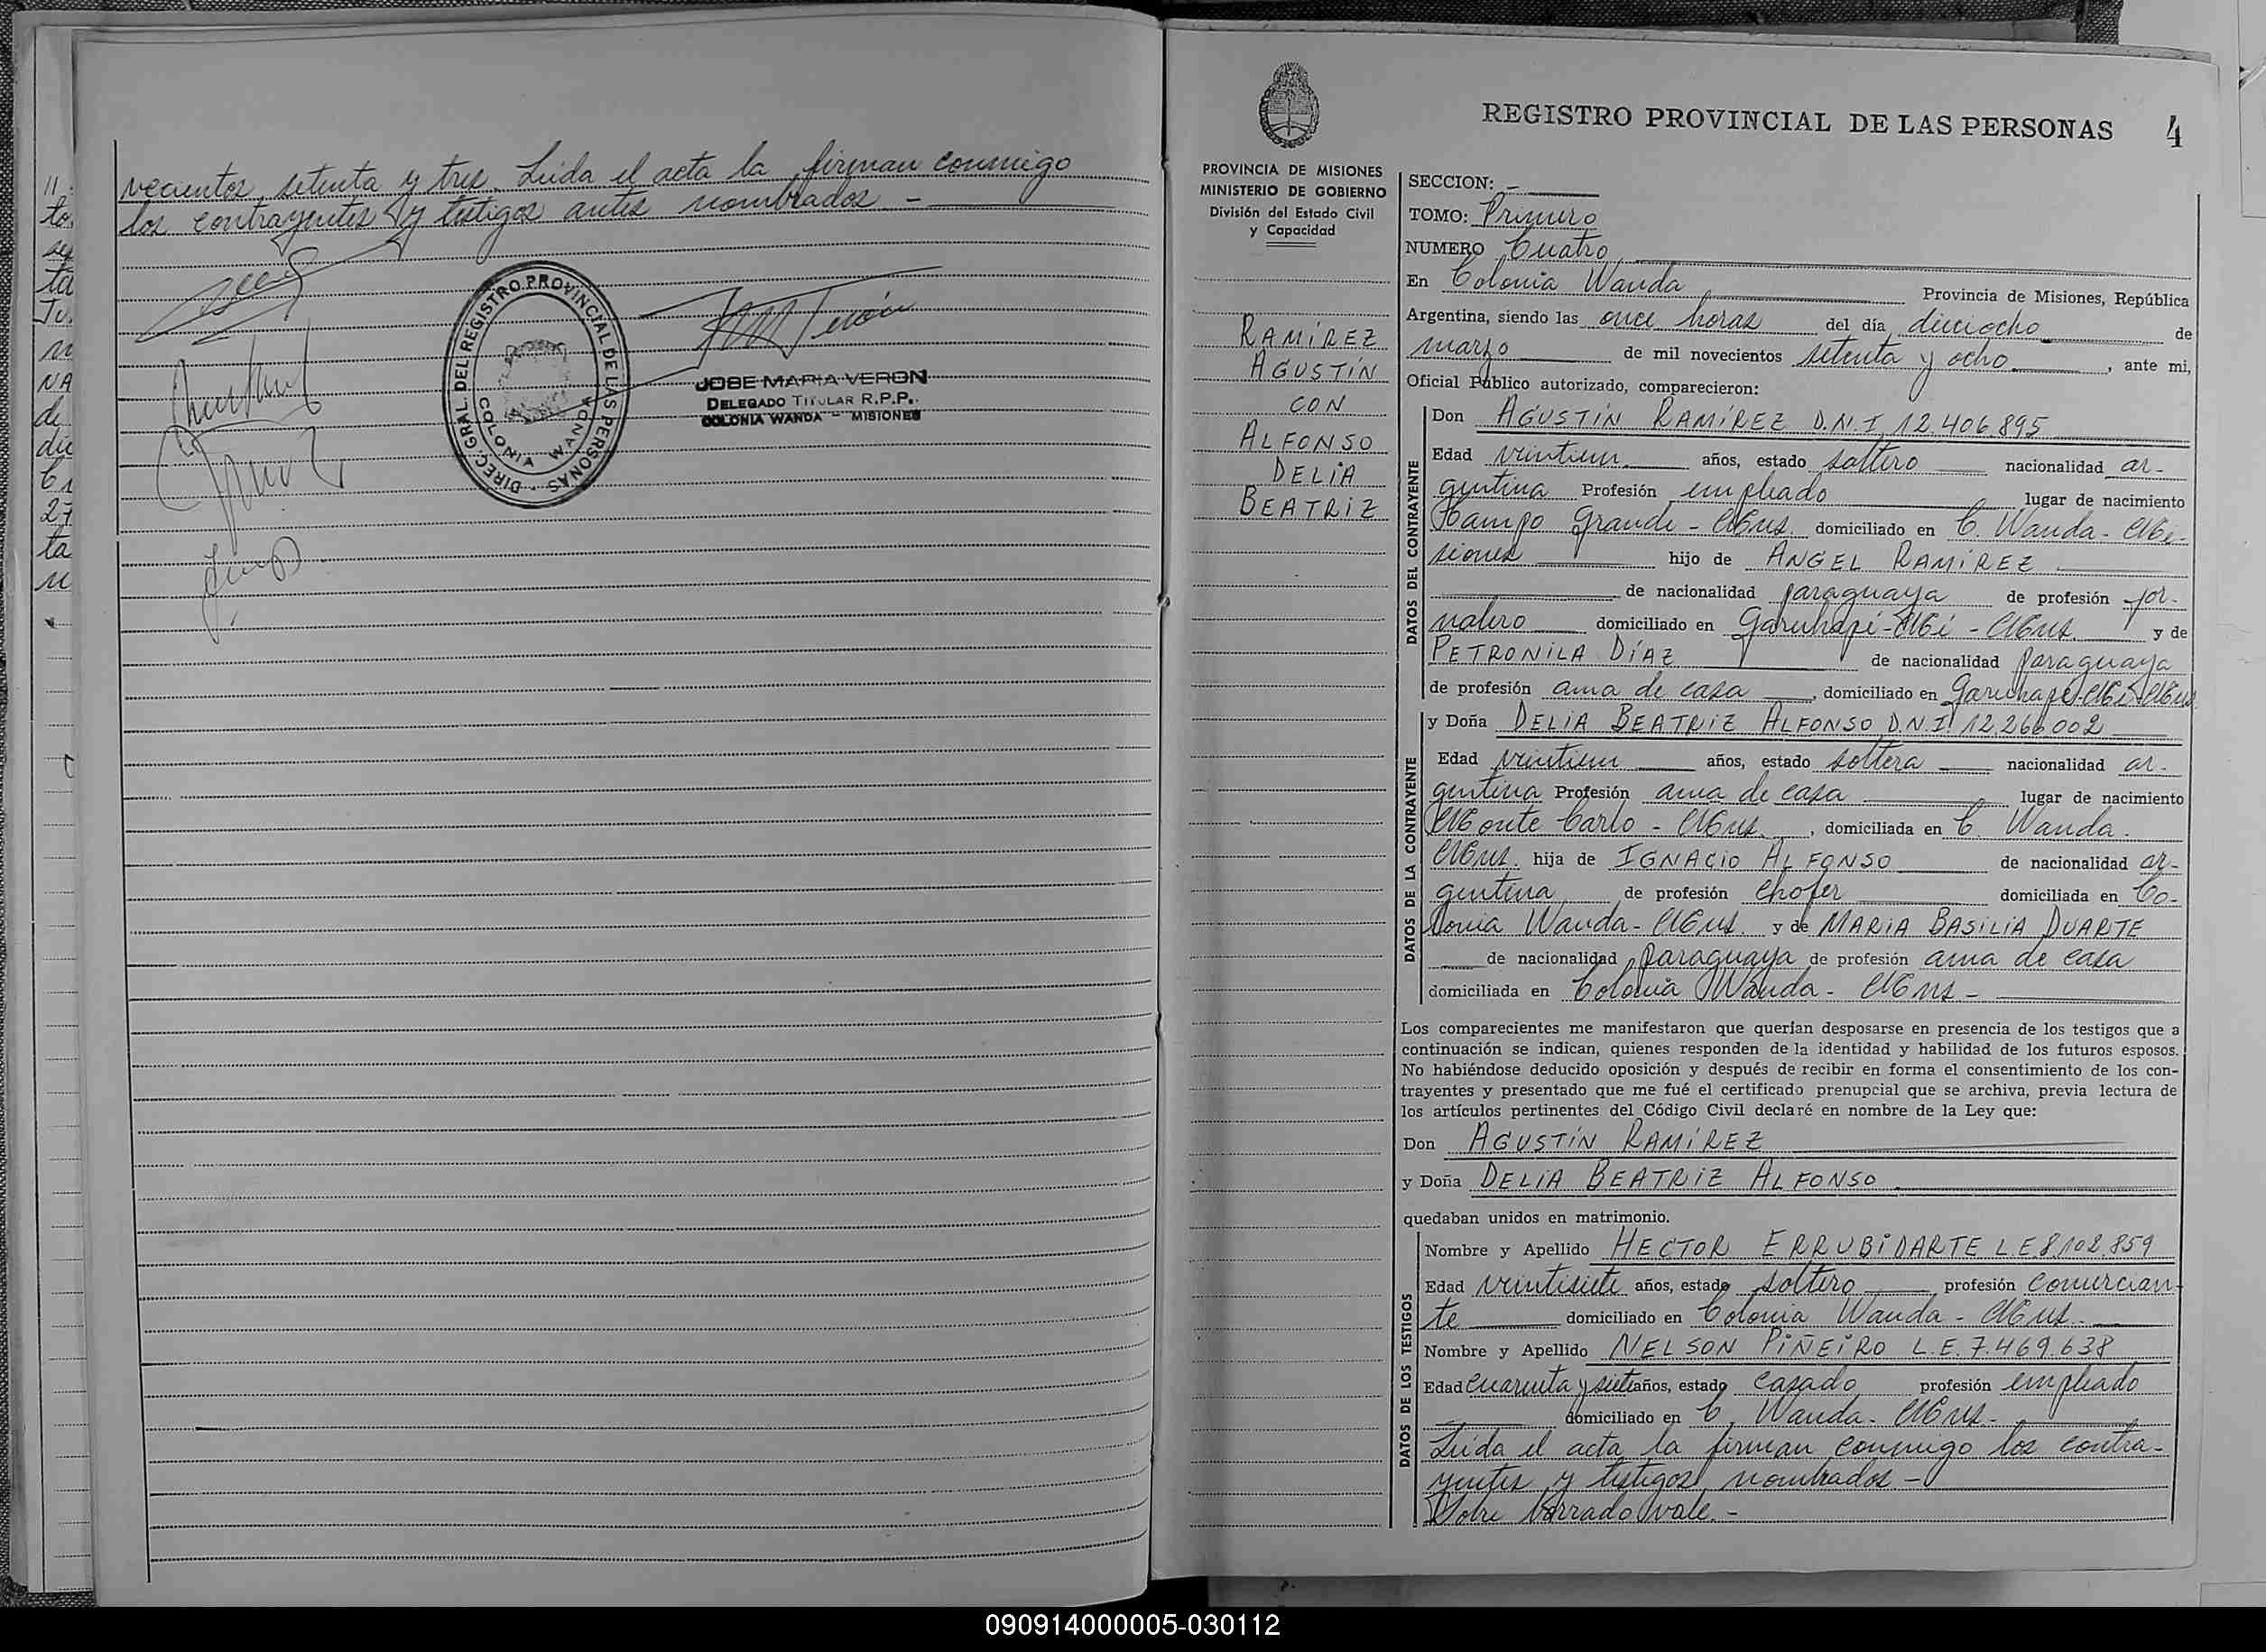 vecientos setenta y tres. Leida el acta la firman conmigo
los contrayentes y testigos antes nombrados. -
DIREC. GRAL. DEL REGISTRO PROVINCIAL DE LAS PERSONAS -
COLONIA WANDA
JOSE MARIA VERON
DELEGADO TITULAR R.P.P.
COLONIA WANDA - MISIONES
REGISTRO PROVINCIAL DE LAS PERSONAS 4
PROVINCIA DE MISIONES
MINISTERIO DE GOBIERNO
División del Estado Civil
y Capacidad
RAMÍREZ
AGUSTÍN
CON
ALFONSO
DELIA
BEATRIZ
SECCION: -
TOMO: Primero
NUMERO Cuatro
En Colonia Wanda Provincia de Misiones, República
Argentina, siendo las once horas del día dieciocho de
marzo de mil novecientos setenta y ocho, ante mi,
Oficial Público autorizado, comparecieron:
DATOS DEL CONTRAYENTE
Don AGUSTÍN RAMÍREZ D.N.I 12.406.895
Edad veintiun años, estado soltero nacionalidad ar-
gentina Profesión empleado lugar de nacimiento
Campo Grande - Mnes. domiciliado en C. Wanda - Mi-
siones hijo de ANGEL RAMÍREZ
de nacionalidad paraguaya de profesión jor-
nalero domiciliado en Garuhapi-Mi - Mnes. y de
PETRONILA DÍAZ de nacionalidad paraguaya
de profesión ama de casa, domiciliado en Garuhapi-Mi-Mnes.
DATOS DE LA CONTRAYENTE
y Doña DELIA BEATRIZ ALFONSO D.N.I. 12.266.002
Edad veintiun años, estado soltera nacionalidad ar-
gentina Profesión ama de casa lugar de nacimiento
Monte Carlo - Mnes., domiciliada en C. Wanda.
Mnes. hija de IGNACIO ALFONSO de nacionalidad ar-
gentina de profesión chofer domiciliada en Co-
lonia Wanda - Mnes. y de MARIA BASILIA DUARTE
de nacionalidad paraguaya de profesión ama de casa
domiciliada en Colonia Wanda - Mnes -
Los comparecientes me manifestaron que querían desposarse en presencia de los testigos que a
continuación se indican, quienes responden de la identidad y habilidad de los futuros esposos.
No habiéndose deducido oposición y después de recibir en forma el consentimiento de los con-
trayentes y presentado que me fué el certificado prenupcial que se archiva, previa lectura de
los artículos pertinentes del Código Civil declaré en nombre de la Ley que:
Don AGUSTÍN RAMÍREZ
y Doña DELIA BEATRIZ ALFONSO
quedaban unidos en matrimonio.
DATOS DE LOS TESTIGOS
Nombre y Apellido HECTOR ERRUBIDARTE L.E 8.102.859
Edad veintisiete años, estado soltero profesión comercian-
te domiciliado en Colonia Wanda - Mnes.
Nombre y Apellido NELSON PIÑEIRO L.E. 7.469.638
Edad cuarenta y siete años, estado casado profesión empleado
domiciliado en C. Wanda - Mnes -
Leida el acta la firman conmigo los contra-
yentes y testigos nombrados -
Sobre borrado vale. -
090914000005-030112